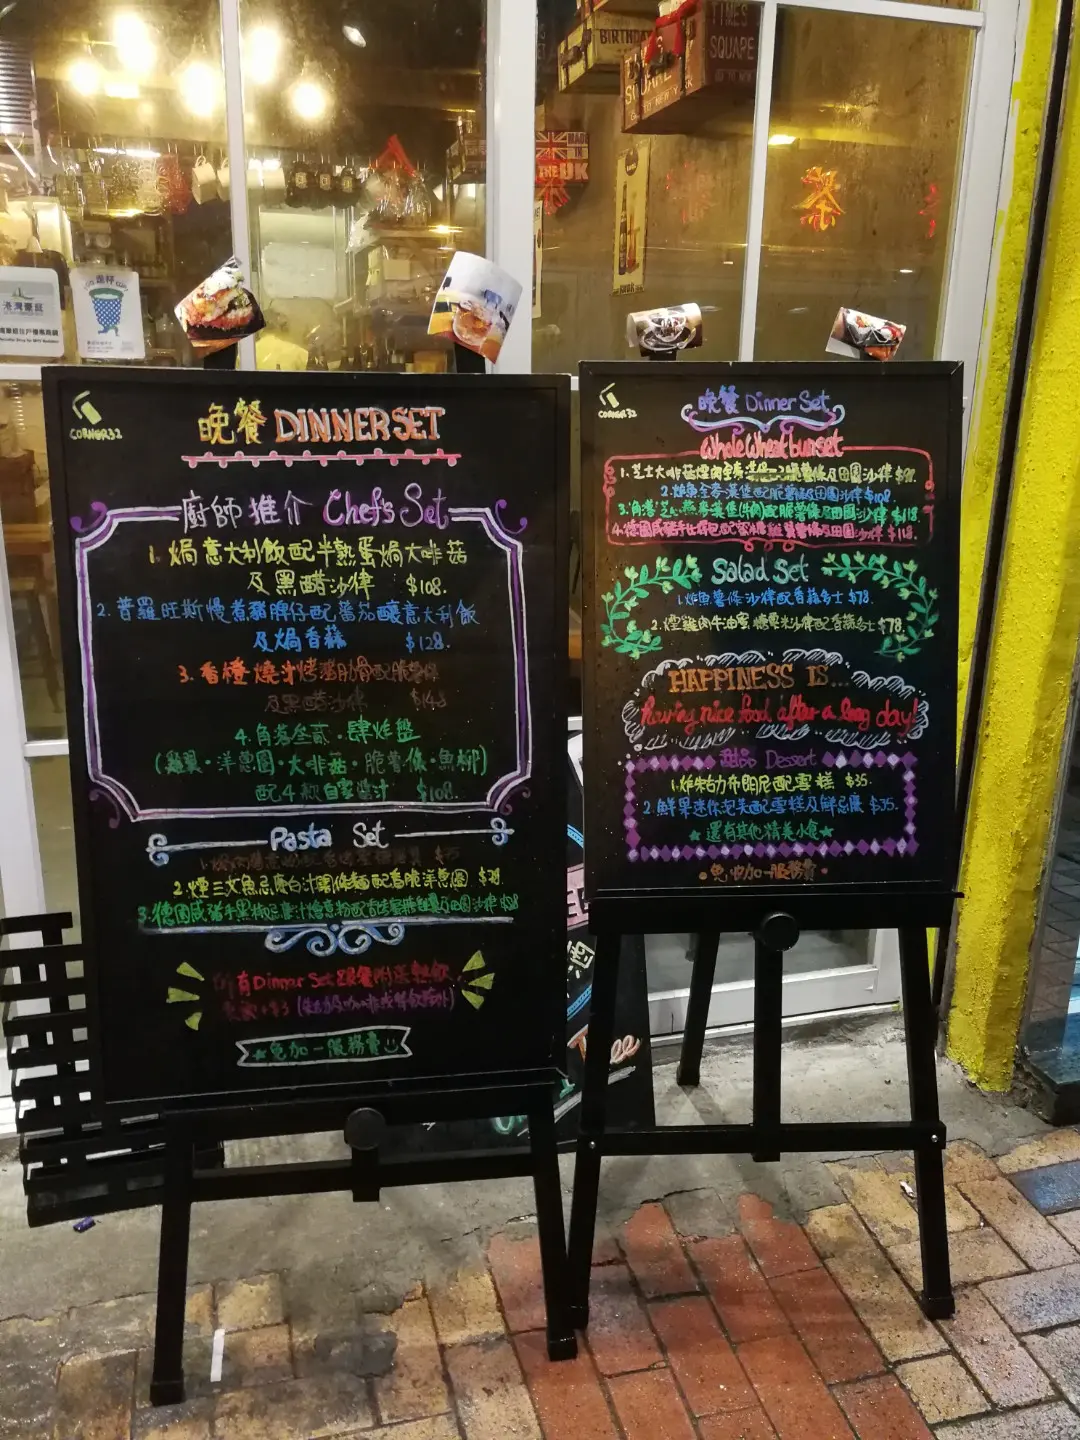 BIRTHDAY
TIMES
SQUARE
THE UK
茶
港灣豪庭
CORNER32
晚餐 DINNER SET
廚師推介 Chef's Set
1. 焗意大利飯配半熟蛋焗大啡菇
及黑醋沙律 $108.
2. 普羅旺斯慢煮豬脾仔配蕃茄釀意大利飯
及焗香蒜 $128.
3. 香橙燒汁烤豬肋骨配脆薯條
及黑醋沙律 $148
4. 角落叁貳・肆炸盤
(雞翼・洋葱圈・大啡菇・脆薯條・魚柳)
配4款自家醬汁 $108.
Pasta Set
2. 煙三文魚忌廉白汁闊條麵配香脆洋葱圈
3. 德國咸豬手黑椒忌廉汁燴意粉
所有Dinner Set跟餐附送熱飲
凍飲+$3
★免加一服務費
CORNER32
晚餐 Dinner Set
Whole Wheat bun set
1. 芝士大啡菇煙肉全麥漢堡配脆薯條及田園沙律
2. 炸魚全麥漢堡配脆薯條及田園沙律 $108.
3. 角落芝士燕麥漢堡(牛肉)配脆薯條及田園沙律 $118
4. 德國咸豬手仕包配蜜糖雞翼薯條及田園沙律 $118.
Salad Set
1. 炸魚薯條沙律配香蒜多士 $78.
2. 煙雞肉牛油果沙律配香蒜多士 $78.
HAPPINESS IS...
having nice food after a long day!
甜品 Dessert
1. 炸朱古力布朗尼配雪糕 $35.
2. 鮮果迷你把芙配雪糕及鮮忌廉 $35.
★還有其他精美小食★
免收加一服務費